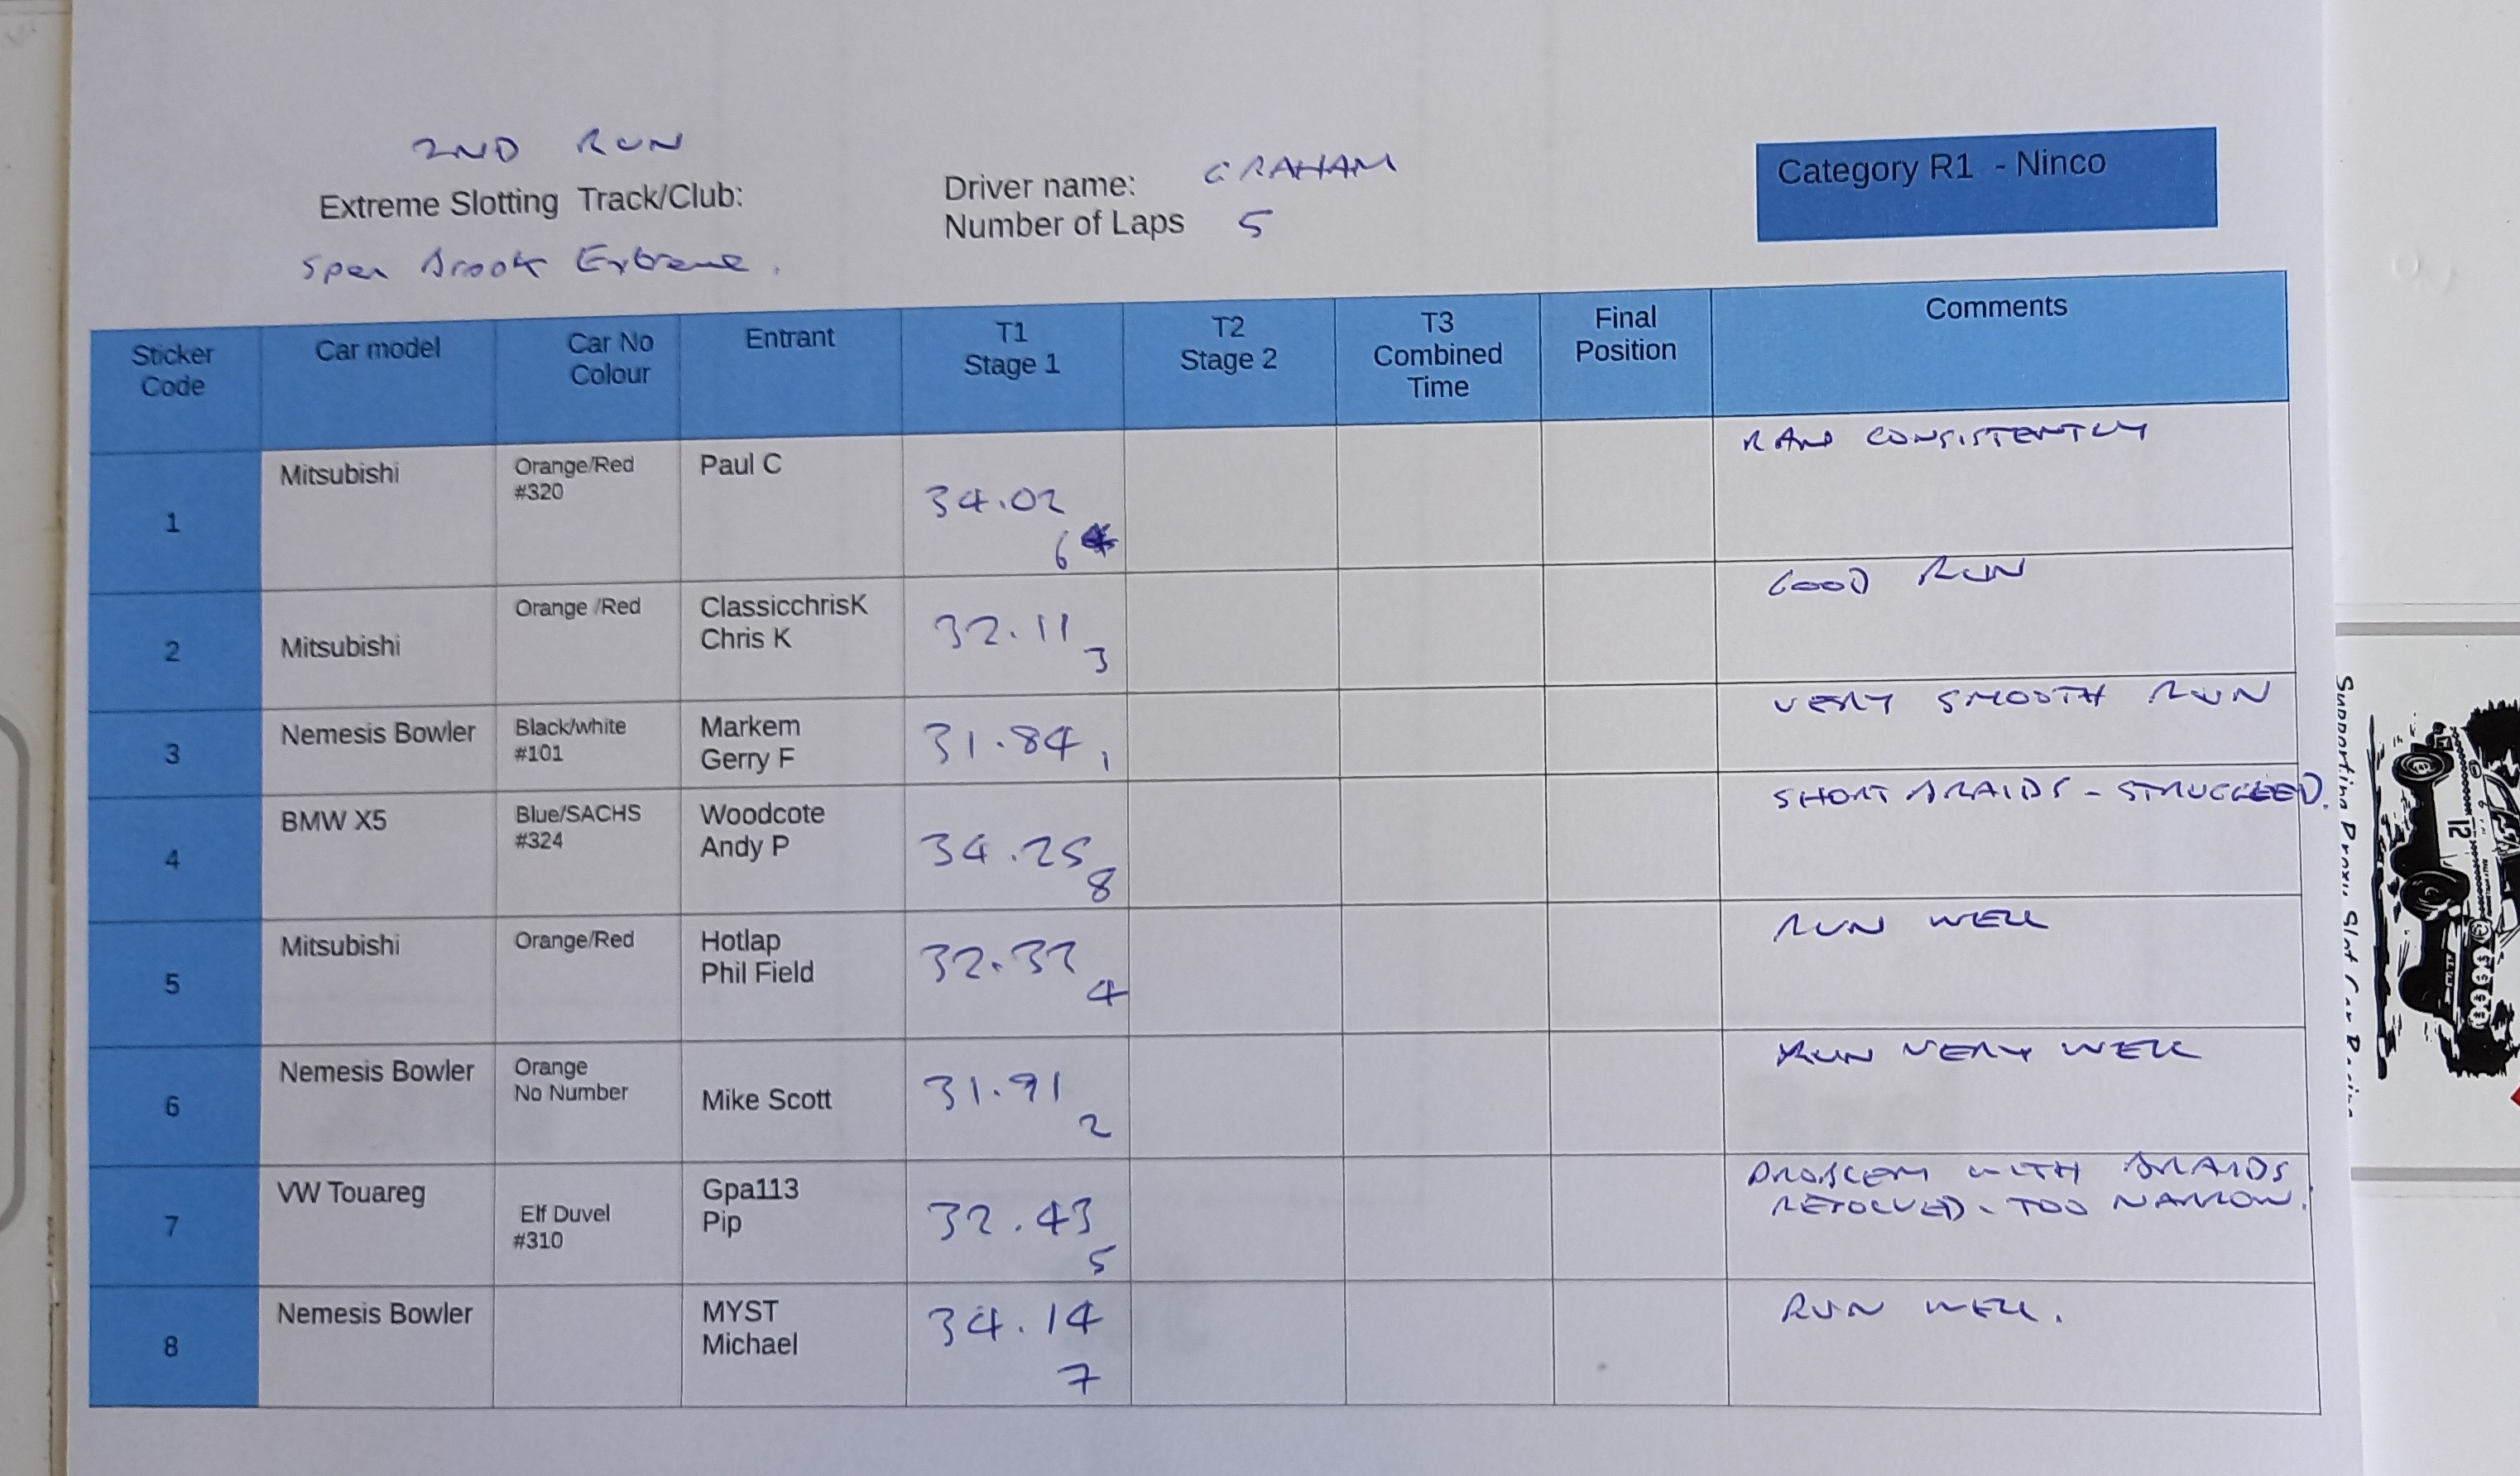 2ND RUN
Extreme Slotting Track/Club:
Spen Brook Extreme.
Driver name: GRAHAM
Number of Laps 5
Category R1 - Ninco
Sticker Code
Car model
Car No Colour
Entrant
T1 Stage 1
T2 Stage 2
T3 Combined Time
Final Position
Comments
1 Mitsubishi Orange/Red #320 Paul C 34.02 6 RAN CONSISTENTLY
2 Mitsubishi Orange /Red ClassicchrisK Chris K 32.11 3 GOOD RUN
3 Nemesis Bowler Black/white #101 Markem Gerry F 31.84 1 VERY SMOOTH RUN
4 BMW X5 Blue/SACHS #324 Woodcote Andy P 34.25 8 SHORT BRAIDS - STRUGGLED.
5 Mitsubishi Orange/Red Hotlap Phil Field 32.37 4 RUN WELL
6 Nemesis Bowler Orange No Number Mike Scott 31.91 2 RUN VERY WELL
7 VW Touareg Elf Duvel #310 Gpa113 Pip 32.43 5 PROBLEM WITH BRAIDS
RESOLVED - TOO NARROW.
8 Nemesis Bowler MYST Michael 34.14 7 RUN WELL.
Supporting Proxy Slot Car Racing
12